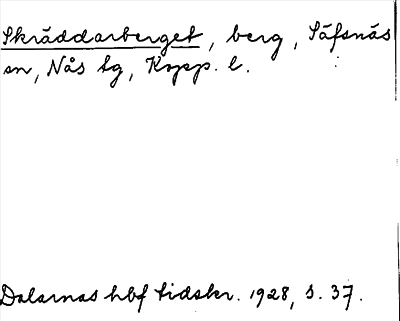 Skräddarberget, berg, Säfsnäs
sn, Nås tg, Kopp. l.
Dalarnas hbf tidskr. 1928, s. 37.